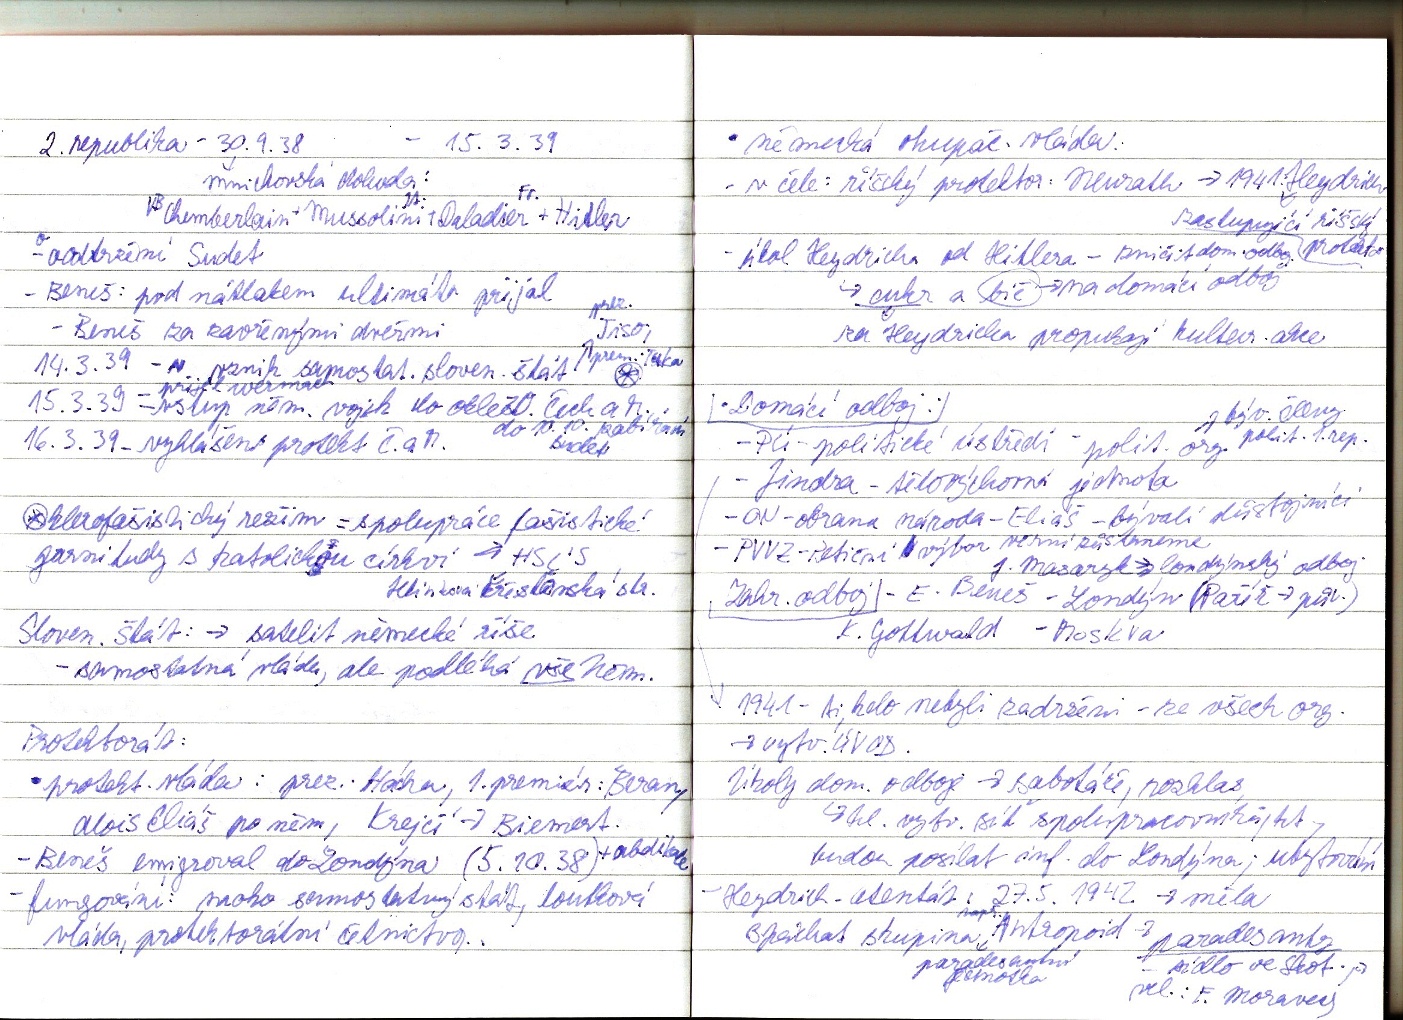 2. republika - 30.9.38 - 15.3.39
mnichovská dohoda:
VB Chemberlain + Mussolini It. + Daladier Fr. + Hitler
- odtržení Sudet
- Beneš: pod nátlakem ultimáta přijal
- Beneš za zavřenými dveřmi
prez. Tiso,
14.3.39 - vznik samostat. sloven. štát prem.: Tuka
přijel wermach
15.3.39 - vstup něm. vojsk do oblastí Čech a M.
do 10.10. zabírání Sudet
16.3.39 - vyhlášení protekt. Č. a M.
klerofašistický režim = spolupráce fašistické
garnitudy s katolickou církví → HSĽS
Hlinkova křesťanská str.
Sloven. štát: → satelit německé říše
- samostatná vláda, ale podléhá vše Něm.
Protektorát:
• protekt. vláda: prez. Hácha, 1. premiér: Beran,
Alois Eliáš po něm, Krejčí → Bienert.
- Beneš emigroval do Londýna (5.10.38) + abdikace
- fungování: moho samostatný stát, loutková
vláda, protektorátní četnictvo..
• německá okupač. vláda:
- v čele: říšský protektor: Neurath → 1941: Heydrich
zastupující říšský
- úkol Heydricha od Hitlera - zničit dom. odboj protektor
↳ cukr a bič → na domácí odboj
za Heydricha propukají kultur. akce
• Domácí odboj:
býv. členy
- PÚ - politické ústředí - polit. org. polit. 1. rep.
- Jindra - tělovýchovná jednota
- ON - obrana národa - Eliáš - bývalí důstojníci
- PVVZ - Petiční výbor věrni zůstaneme
J. Masaryk → londýnský odboj
Zahr. odboj - E. Beneš - Londýn (Paříž → pův.)
K. Gottwald - Moskva
1941 - ti, kdo nebyli zadrženi - ze všech org.
→ vytv. ÚVOD.
Úkoly dom. odboje → sabotáže, rozhlas,
↳ hl. vytv. síť spolupracovníků, kt.
budou posílat inf. do Londýna, ubytování
- Heydrich - atentát: 27.5. 1942 → měla
spáchat skupina např. Antropoid →
paradesantní jednotka
paradesanty
- sídlo ve Skot.
vel.: F. Moravec